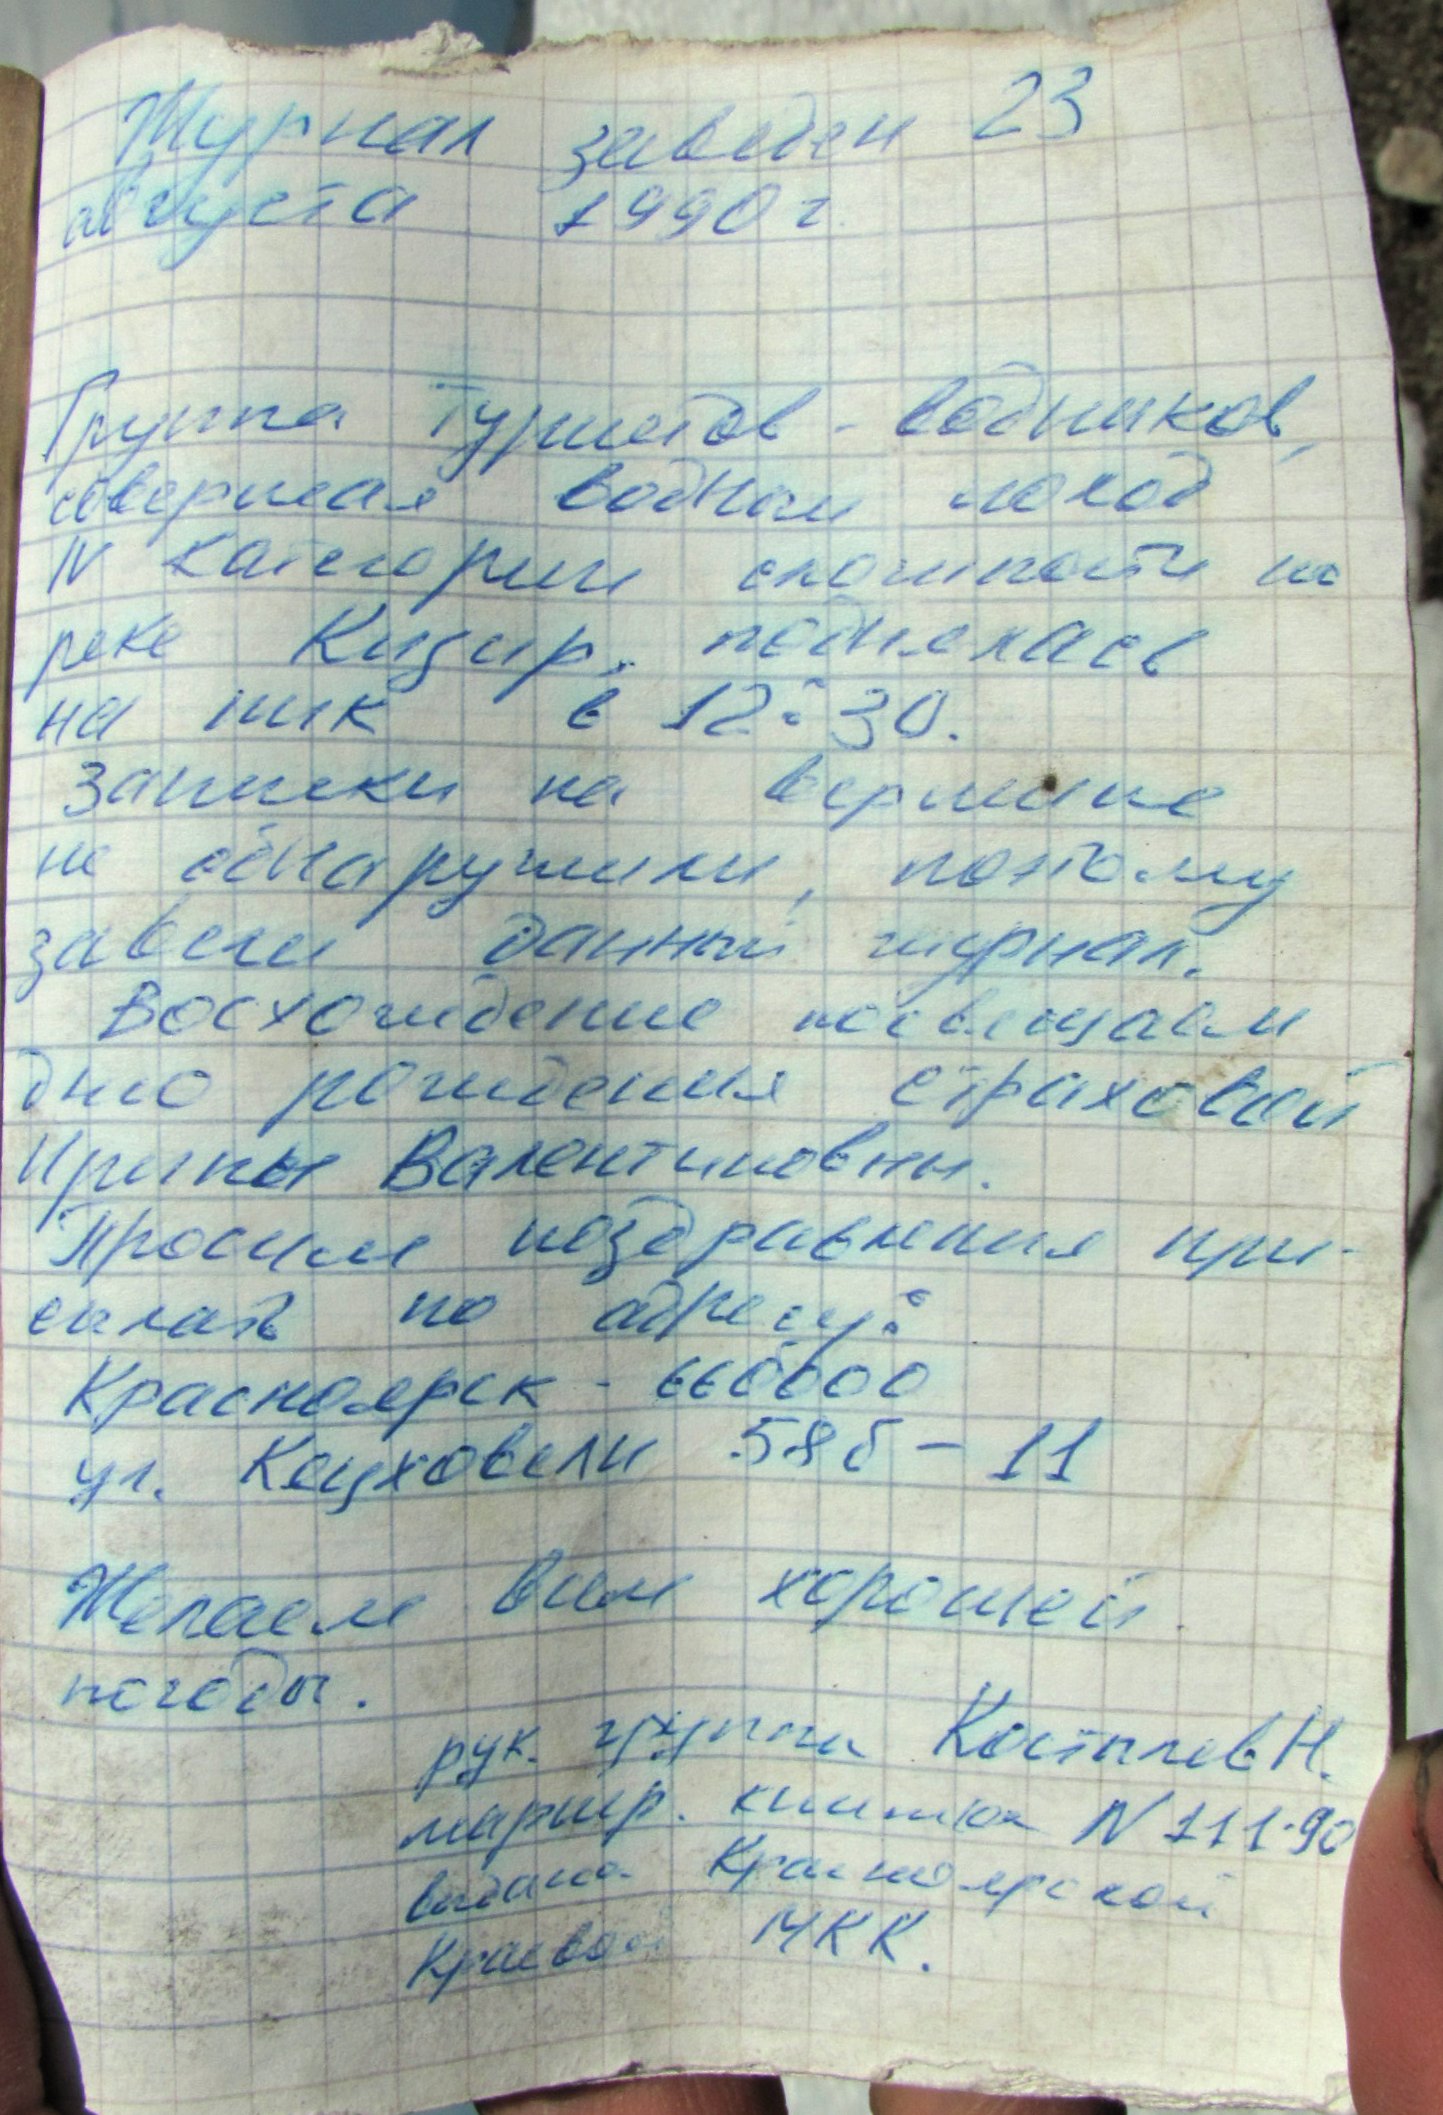 Журнал заведен 23
августа 1990 г.
Группа туристов - водников,
совершая водный поход
IV категории сложности на
реке Кизир, поднялась
на пик в 12:30.
Записки на вершине
не обнаружили, поэтому
завели данный журнал.
Восхождение посвящаем
дню рождения Страховой
Ирины Валентиновны.
Просим поздравления при-
сылать по адресу:
Красноярск - 660000
ул. Кецховели 58б - 11
Желаем вам хорошей
погоды.
рук. группы Костылев Н.
маршр. книжка N 111-90
выдана Красноярской
Краевой МКК.